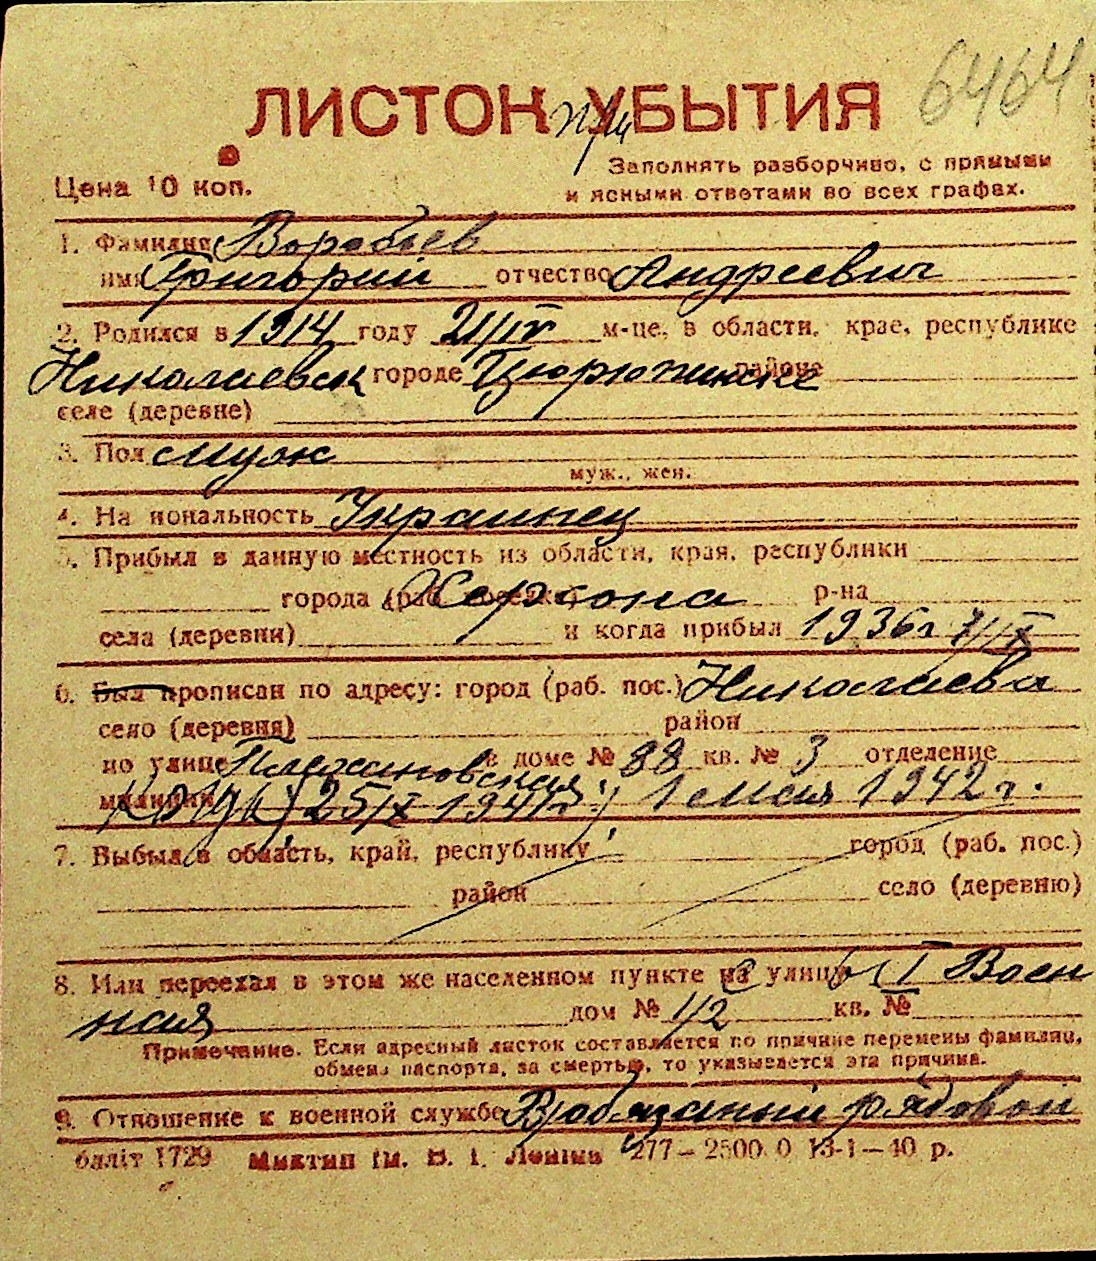 6464
ЛИСТОК УБЫТИЯ
при
Заполнять разборчиво, с прямыми
Цена 10 коп.
и ясными ответами во всех графах.
1. Фамилия Воробьев
имя Григорий отчество Андреевич
2. Родился в 1914 году 21/IV м-це, в области, крае, республике
Николаевск городе Цюрюпинске районе
селе (деревне)
3. Пол муж
муж., жен.
4. На иональность Украинец
5. Прибыл в данную местность из области, края, республики
города (раб. поселка) Херсона р-на
села (деревни) и когда прибыл 1936 г 7/IX
6. Был прописан по адресу: город (раб. пос.) Николаева
село (деревня) район
по улице Плехановская в доме № 88 кв. № 3 отделение
милиции 25/IX 1941 г. 1 мая 1942 г.
7. Выбыл в область, край, республику город (раб. пос.)
район село (деревню)
8. Или переехал в этом же населенном пункте на улицу I Воен
ная дом № 1/2 кв. №
Примечание. Если адресный листок составляется по причине перемены фамилии,
обмена паспорта, за смертью, то указывается эта причина.
9. Отношение к военной службе В/обязаный рядовой
бліт 1729 Миктип ім. В. І. Леніна 277—2500.0 13-1—40 р.